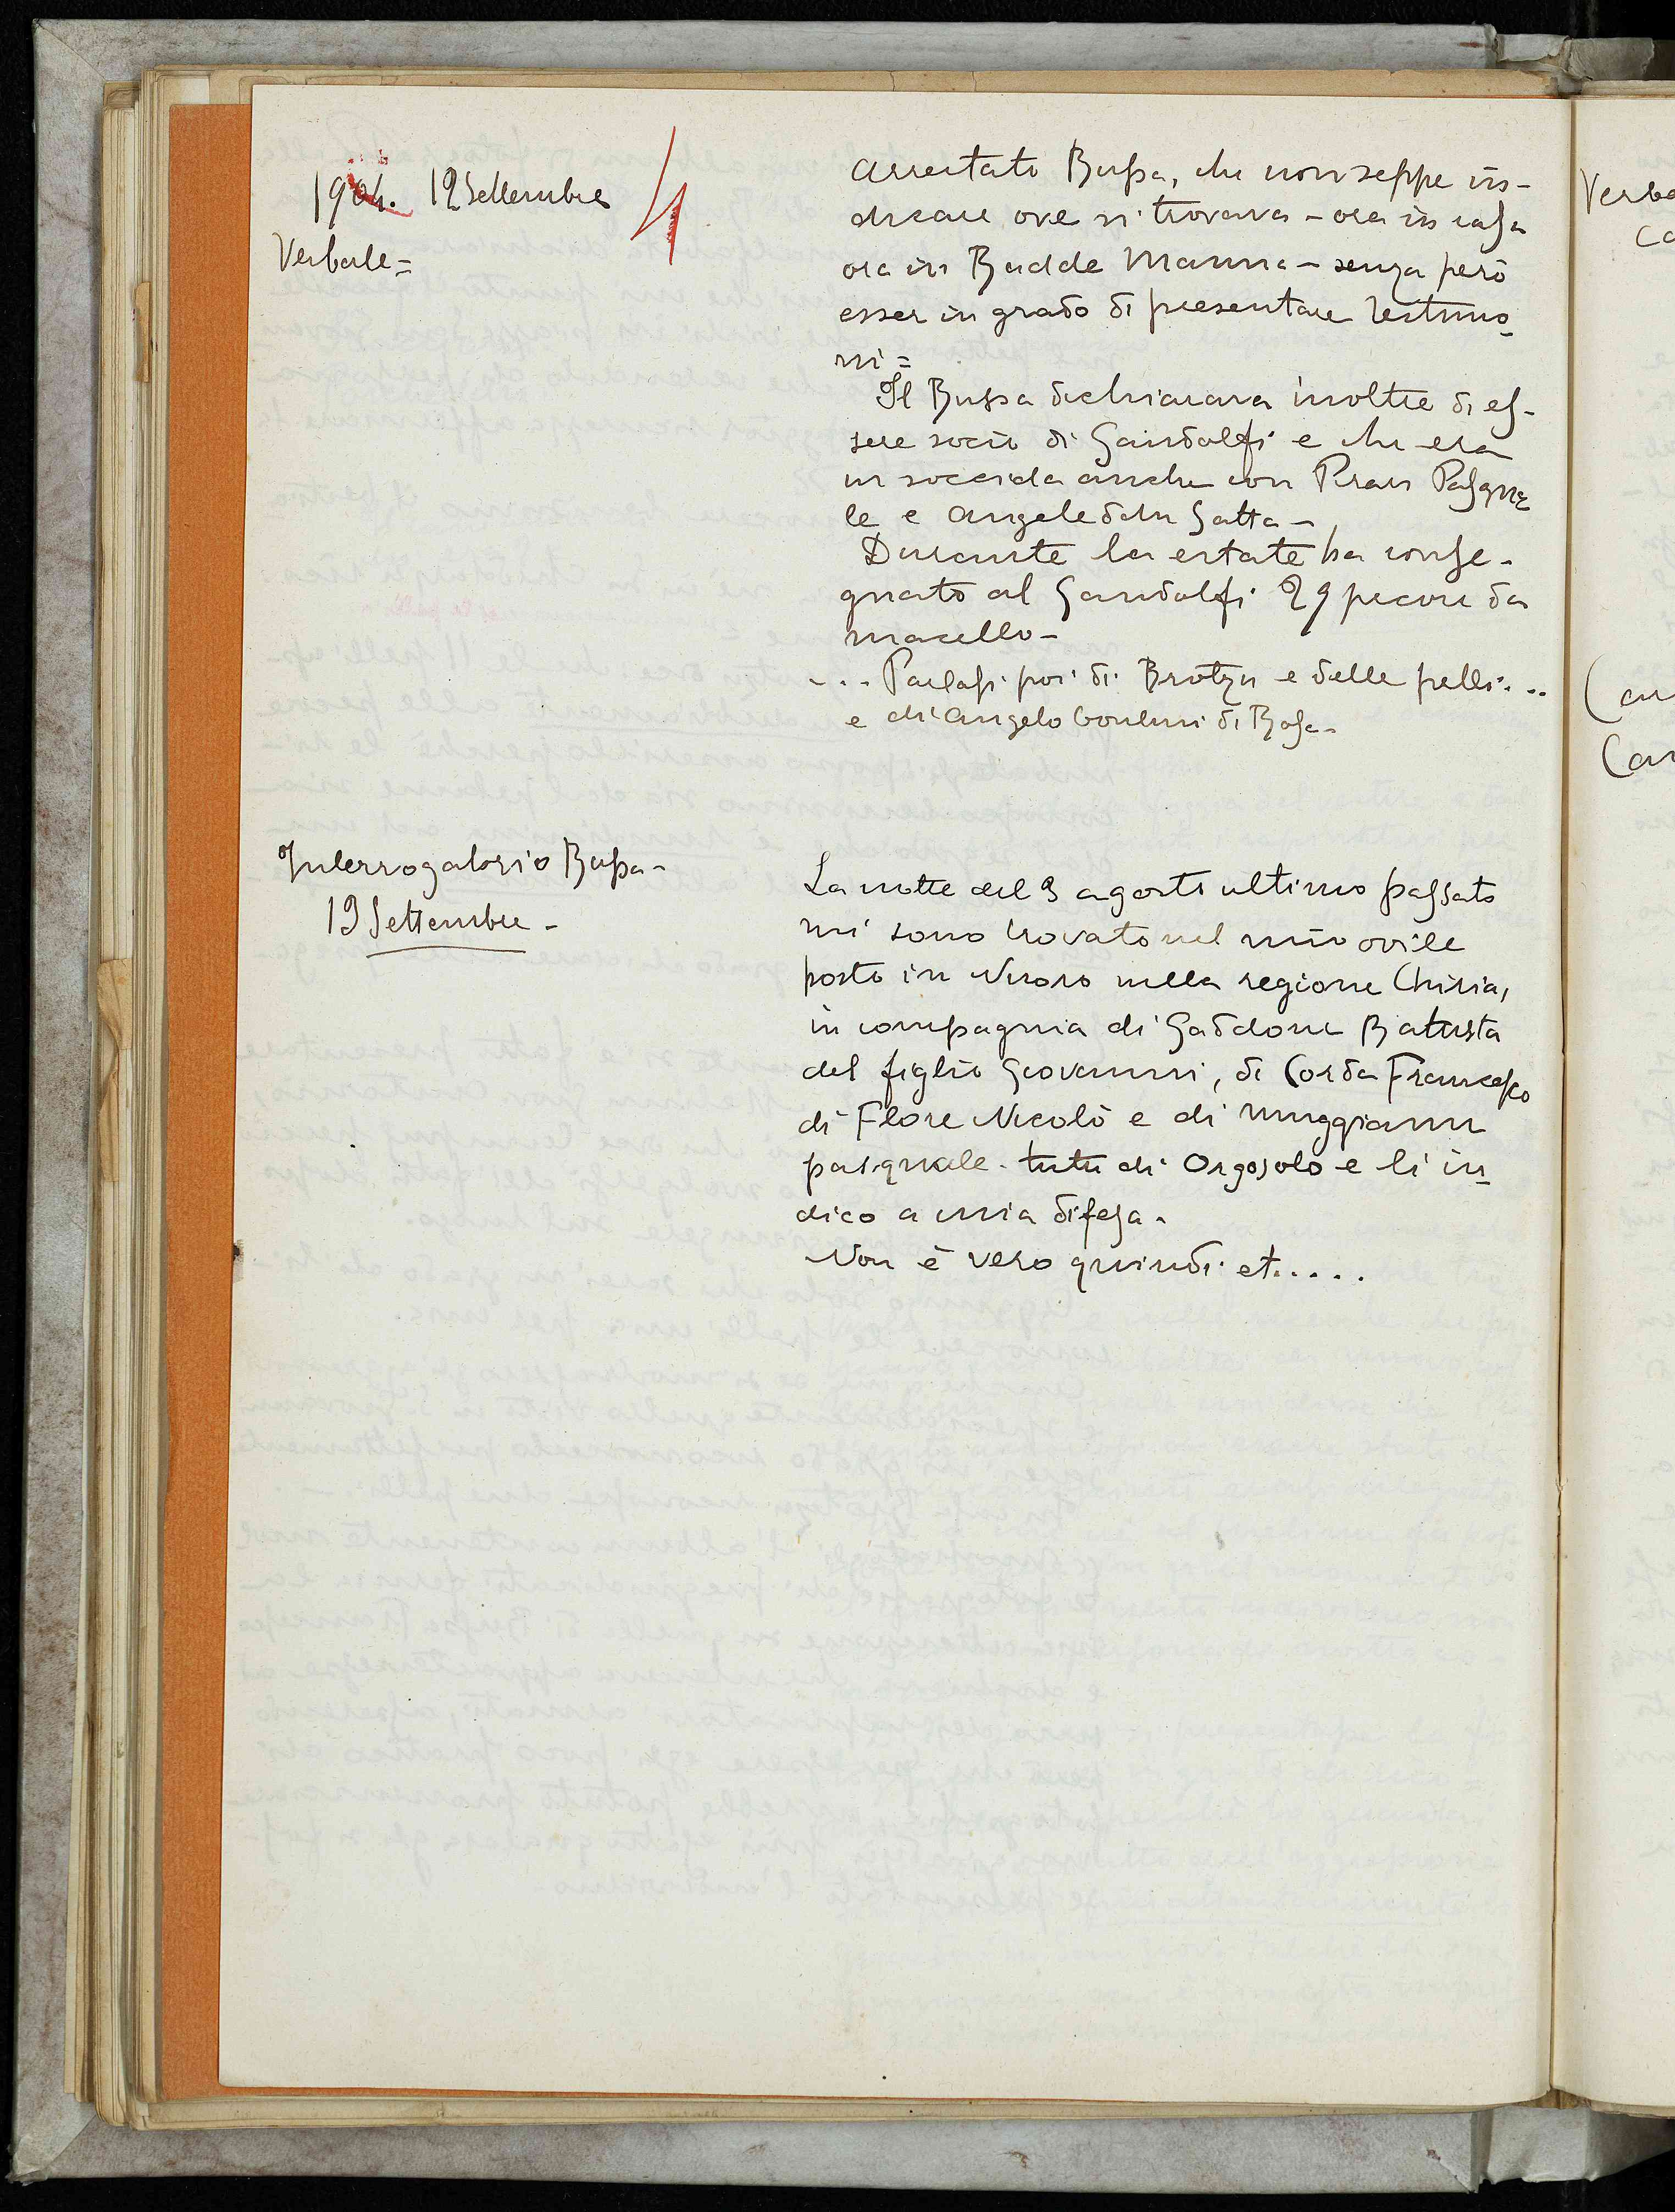 1904. 12 Settembre
4
Verbale=
arrestato Bussa, che non seppe in-
dicare ove si trovava - ora in casa
ora in Badde Manna - senza però
esser in grado di presentare testimo
ni=
Il Bussa dichiarava inoltre di es-
sere socio di Gandolfi e che era
in soccida anche con Piras Pasqua
le e Angele Satta -
Durante la estate ha conse-
gnato al Gandolfi 29 pecore da
macello -
... Parlasi poi di Brotzu e delle pelli...
e di Angelo di Bosa -
Interrogatorio Bussa -
19 Settembre -
La notte del 9 agosto ultimo passato
mi sono trovato nel mio ovile
posto in Nuoro nella regione Chiria,
in compagnia di Gaddone Battista
del figlio Giovanni, di Corda Francesco
di Flore Nicolò e di Muggianu
pasquale - tutti di Orgosolo e li in
dico a mia difesa -
Non è vero quindi et.....
Verba
Ca
(an
(an